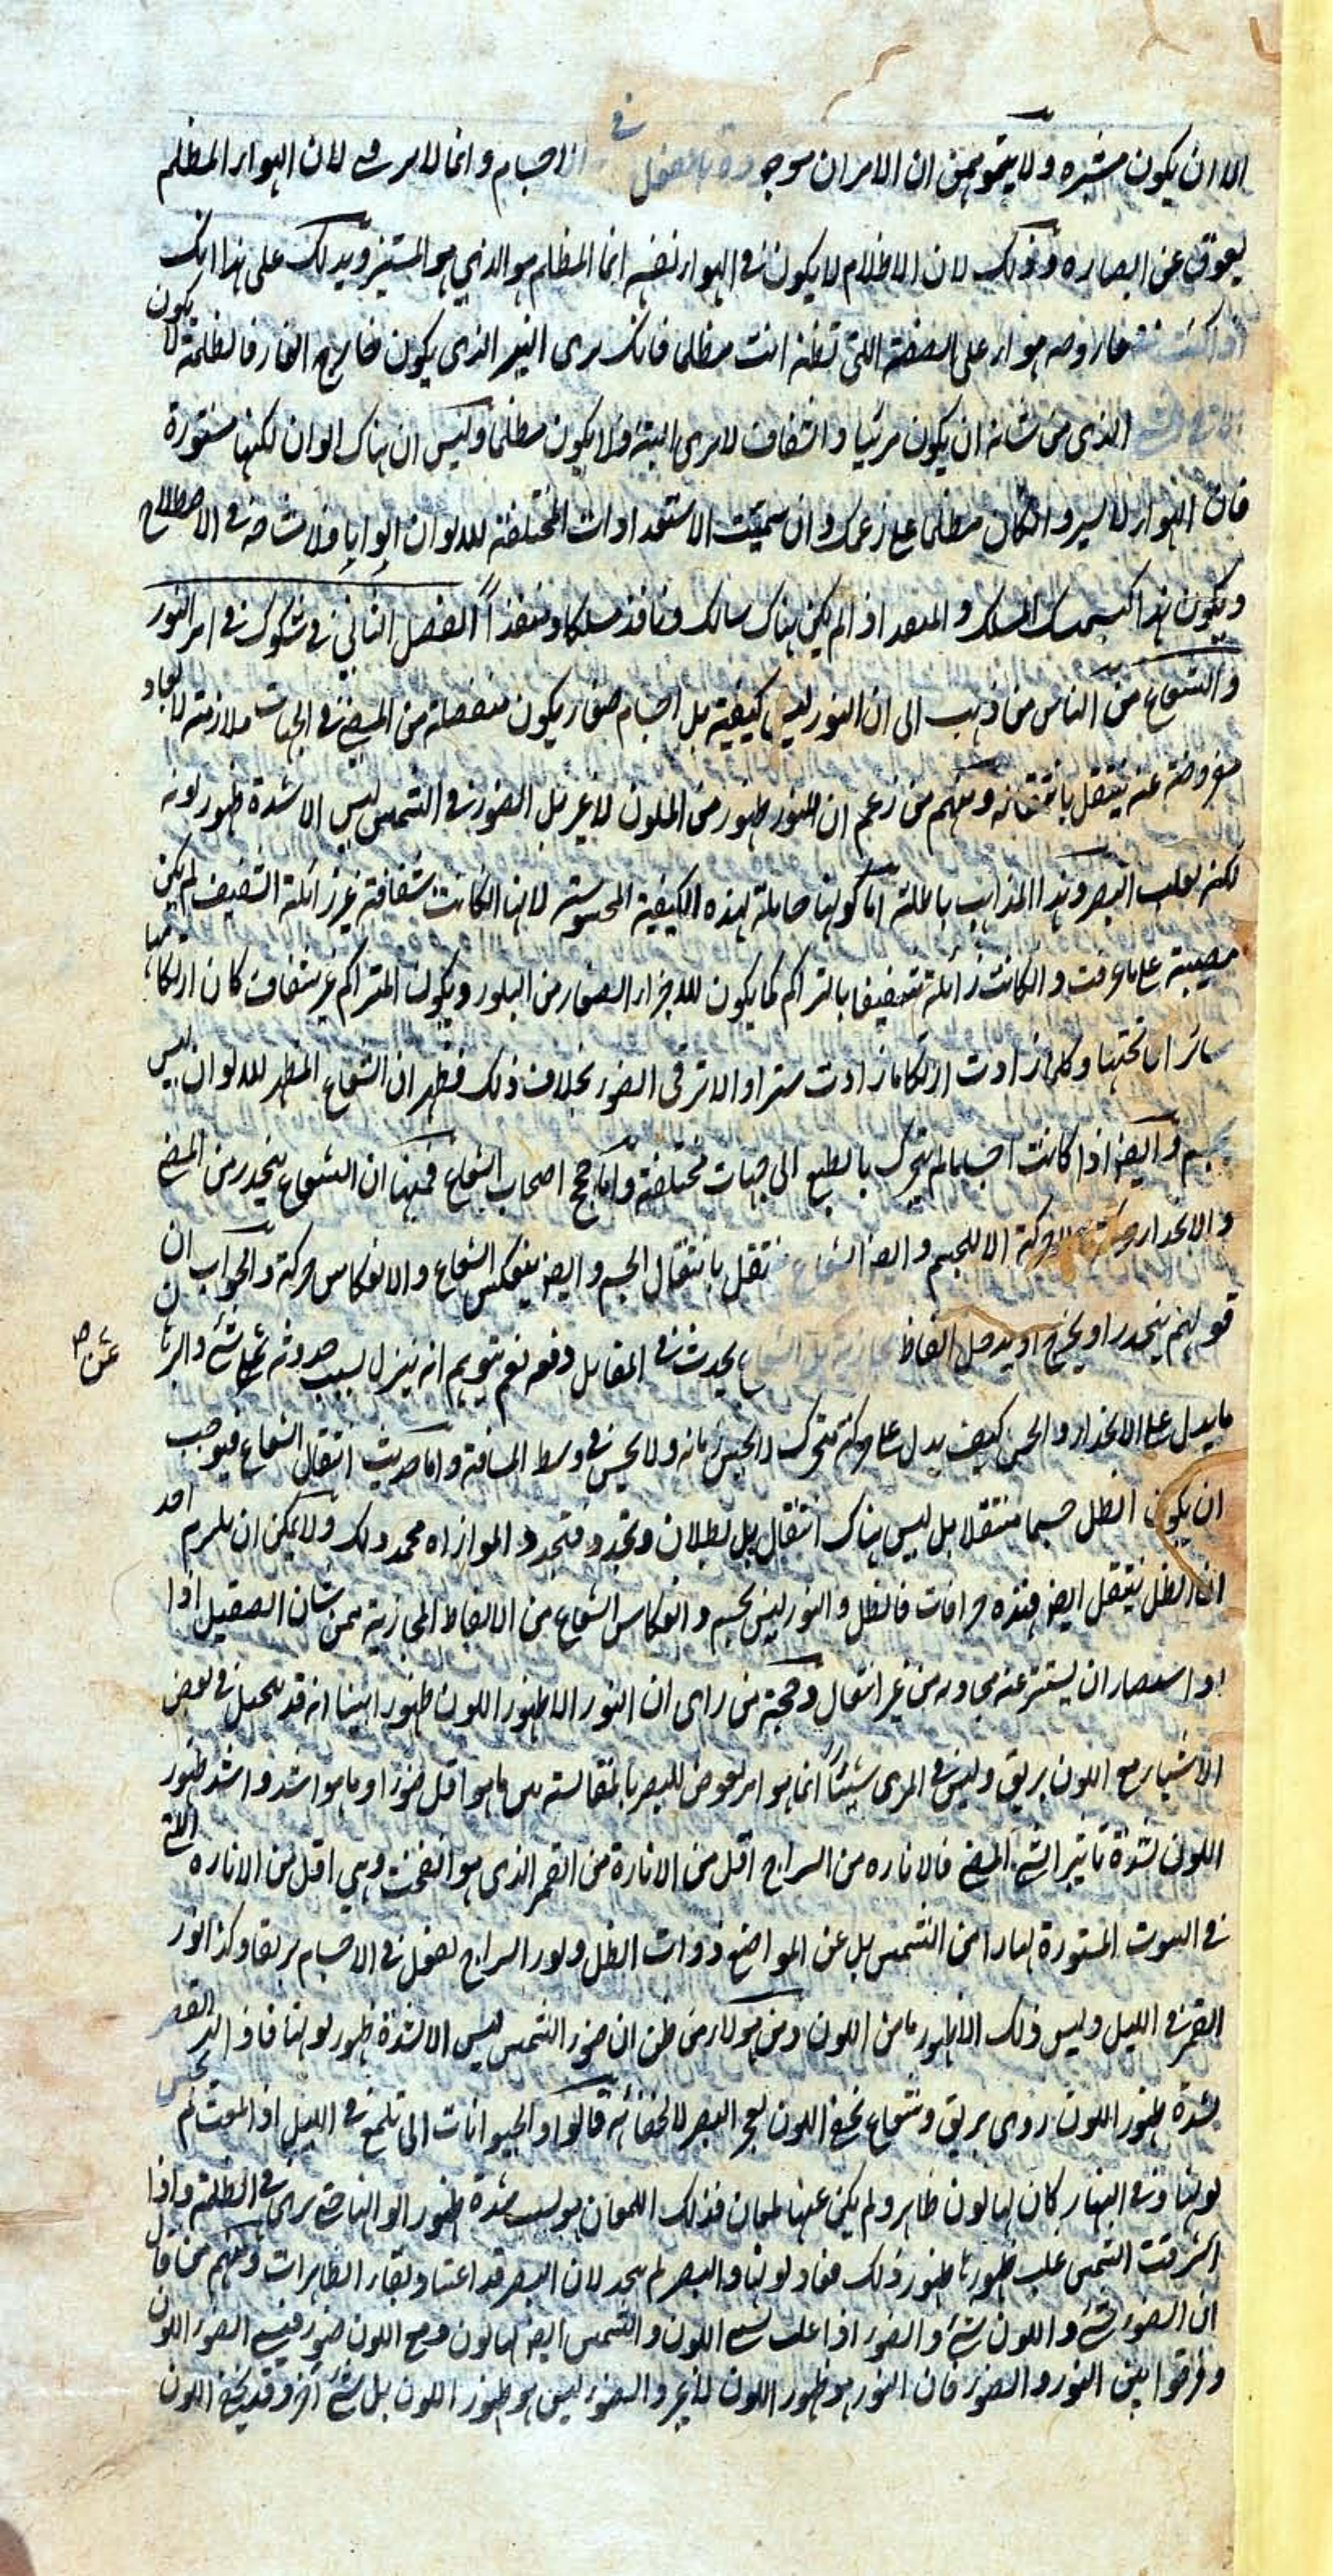 الا ان يكون مستنيره ولا يتوهمن ان الالوان موجوده بالفعل في الاجسام وانما لا يرى لان الهواء المظلم
يعوق عن ابصاره وذلك لان الاظلام لا يكون في الهواء نفسه انما المظلم هو الذي هو المستنير ويدلك على هذا انك
اذا كنت في غار وفيه هواء على الصفة التي تظنه انت مظلما فانك ترى النير الذي يكون خارج الغار فالظلمة لا يكون
الذي من شانه ان يكون مرئيا والشفاف لا يرى البتة ولا يكون مظلما وليس ان هناك الوان لكنها مستورة
فان الهواء لا يستر وان كان مظلما على زعمك وان سميت الاستعدادات المختلفة للالوان الوانا ولا مشاحة في الاصطلاح
ويكون هذا كتسميتك المسلك و المنفذ اذا لم يكن هناك سالك ونافذ مسلكا ومنفذاً الفصل الثاني في شكوك في امر النور
والشعاع من الناس من ذهب الى ان النور ليس كيفية بل اجسام صغار يكون منفصلة من المضئ في الجهات ملازمة لابعاد
مفروضة عنه ينتقل بانتقاله ومنهم من زعم ان النور ظهور من الملون لا غير بل الضوء في الشمس ليس الا شدة ظهور لونه
لكنه يغلب البصر وهذا المذاهب باطلة اما كونها حاملة لهذه الكيفية المحسوسة لانها ان كانت شفافة غير زائلة الشفيف لم يكن
مضيئة على ما عرفت وان كانت زائلة شفيفها بالتراكم كما يكون للاجزاء الصغار من البلور ويكون المتراكم غير شفاف كان ارتكامها
ساترا ما تحتها وكلما زادت ارتكاما زادت سترا والامر في الضوء بخلاف ذلك فظهر ان الشعاع المظهر للالوان ليس
بجسم وايضا اذا كانت اجساما لم يتحرك بالطبع الى جهات مختلفة واما حجج اصحاب الشعاع فمنها ان الشعاع ينحدر من المضئ
والانحدار حركة ولا حركة الا للجسم وايضا الشعاع ينتقل بانتقال الجسم وايضا ينعكس الشعاع والانعكاس حركة والجواب ان
قولهم ينحدر او يخرج او يدخل الفاظ مجازية بل الشعاع يحدث في المقابل دفعة نعم يتوهم انه ينزل بسبب حدوثه عن شئ عال
ما يدل على الانحدار والحس كيف يدل على حركة متحرك لا يحس زمانه ولا يحس في وسط المسافة واما حديث انتقال الشعاع فيوجب
ان يكون الظل جسما منتقلا بل ليس هناك انتقال بل بطلان وتجدد فتجدد الموازاه تجدد ذلك ولا يمكن ان يلزم احد
ان الظل ينتقل ايضا فهذه خرافات فالظل والنور ليس بجسم وانعكاس الشعاع من الالفاظ المجازية فمن شان الصقيل اذا
استضاء ان يستنير عنه محاذيه من غير انتقال وحجة من راى ان النور الا ظهور اللون ظهورا بينا انه قد يتخيل في بعض
الاشياء مع اللون بريق وليس في المرئى شيئاً انما هو امر يعرض للبصر بالمقايسة بين ما هو اقل ضوءا وما هو اشد واشد ظهور
اللون لشدة تاثير الشئ المضئ فالاناره من السراج اقل من الانارة من القمر الذي هو الفخت وهي اقل من الاناره التي
في البيوت المستورة نهارا من الشمس بل عن المواضع ذوات الظل ونور السراج يفعل في الاجسام بريقا وكذا نور
القمر في الليل وليس ذلك الا ظهور ما من اللون ومن هؤلاء من ظن ان ضوء الشمس ليس الا لشدة ظهور لونها فاذا بهر البصر
بشدة ظهور اللون رؤى بريق وشعاع يخفى اللون لعجز البصر لا لخفائه قالوا والحيوانات التي تلمع في الليل اذا لمعت لم يحس
لونها وفي النهار كان لها لون ظاهر ولم يكن عنها لمعان فذلك اللمعان هو بسبب شدة ظهور الوانها حتى يرى في الظلمة واذا
اشرقت الشمس غلب ظهورها ظهور ذلك فعاد لونها والبصر لم يتحير لان البصر قد اعتاد بلقاء الظاهرات ومنهم من قال
ان الضوء شئ واللون شئ والضوء اذا غلب ستر اللون والشمس ايضا لها لون ومع اللون ضوء فيستر الضوء اللون
وفرقوا بين النور والضوء فان النور هو ظهور اللون لا غير والضوء ليس هو ظهور اللون بل شئ آخر وقد يخفى اللون